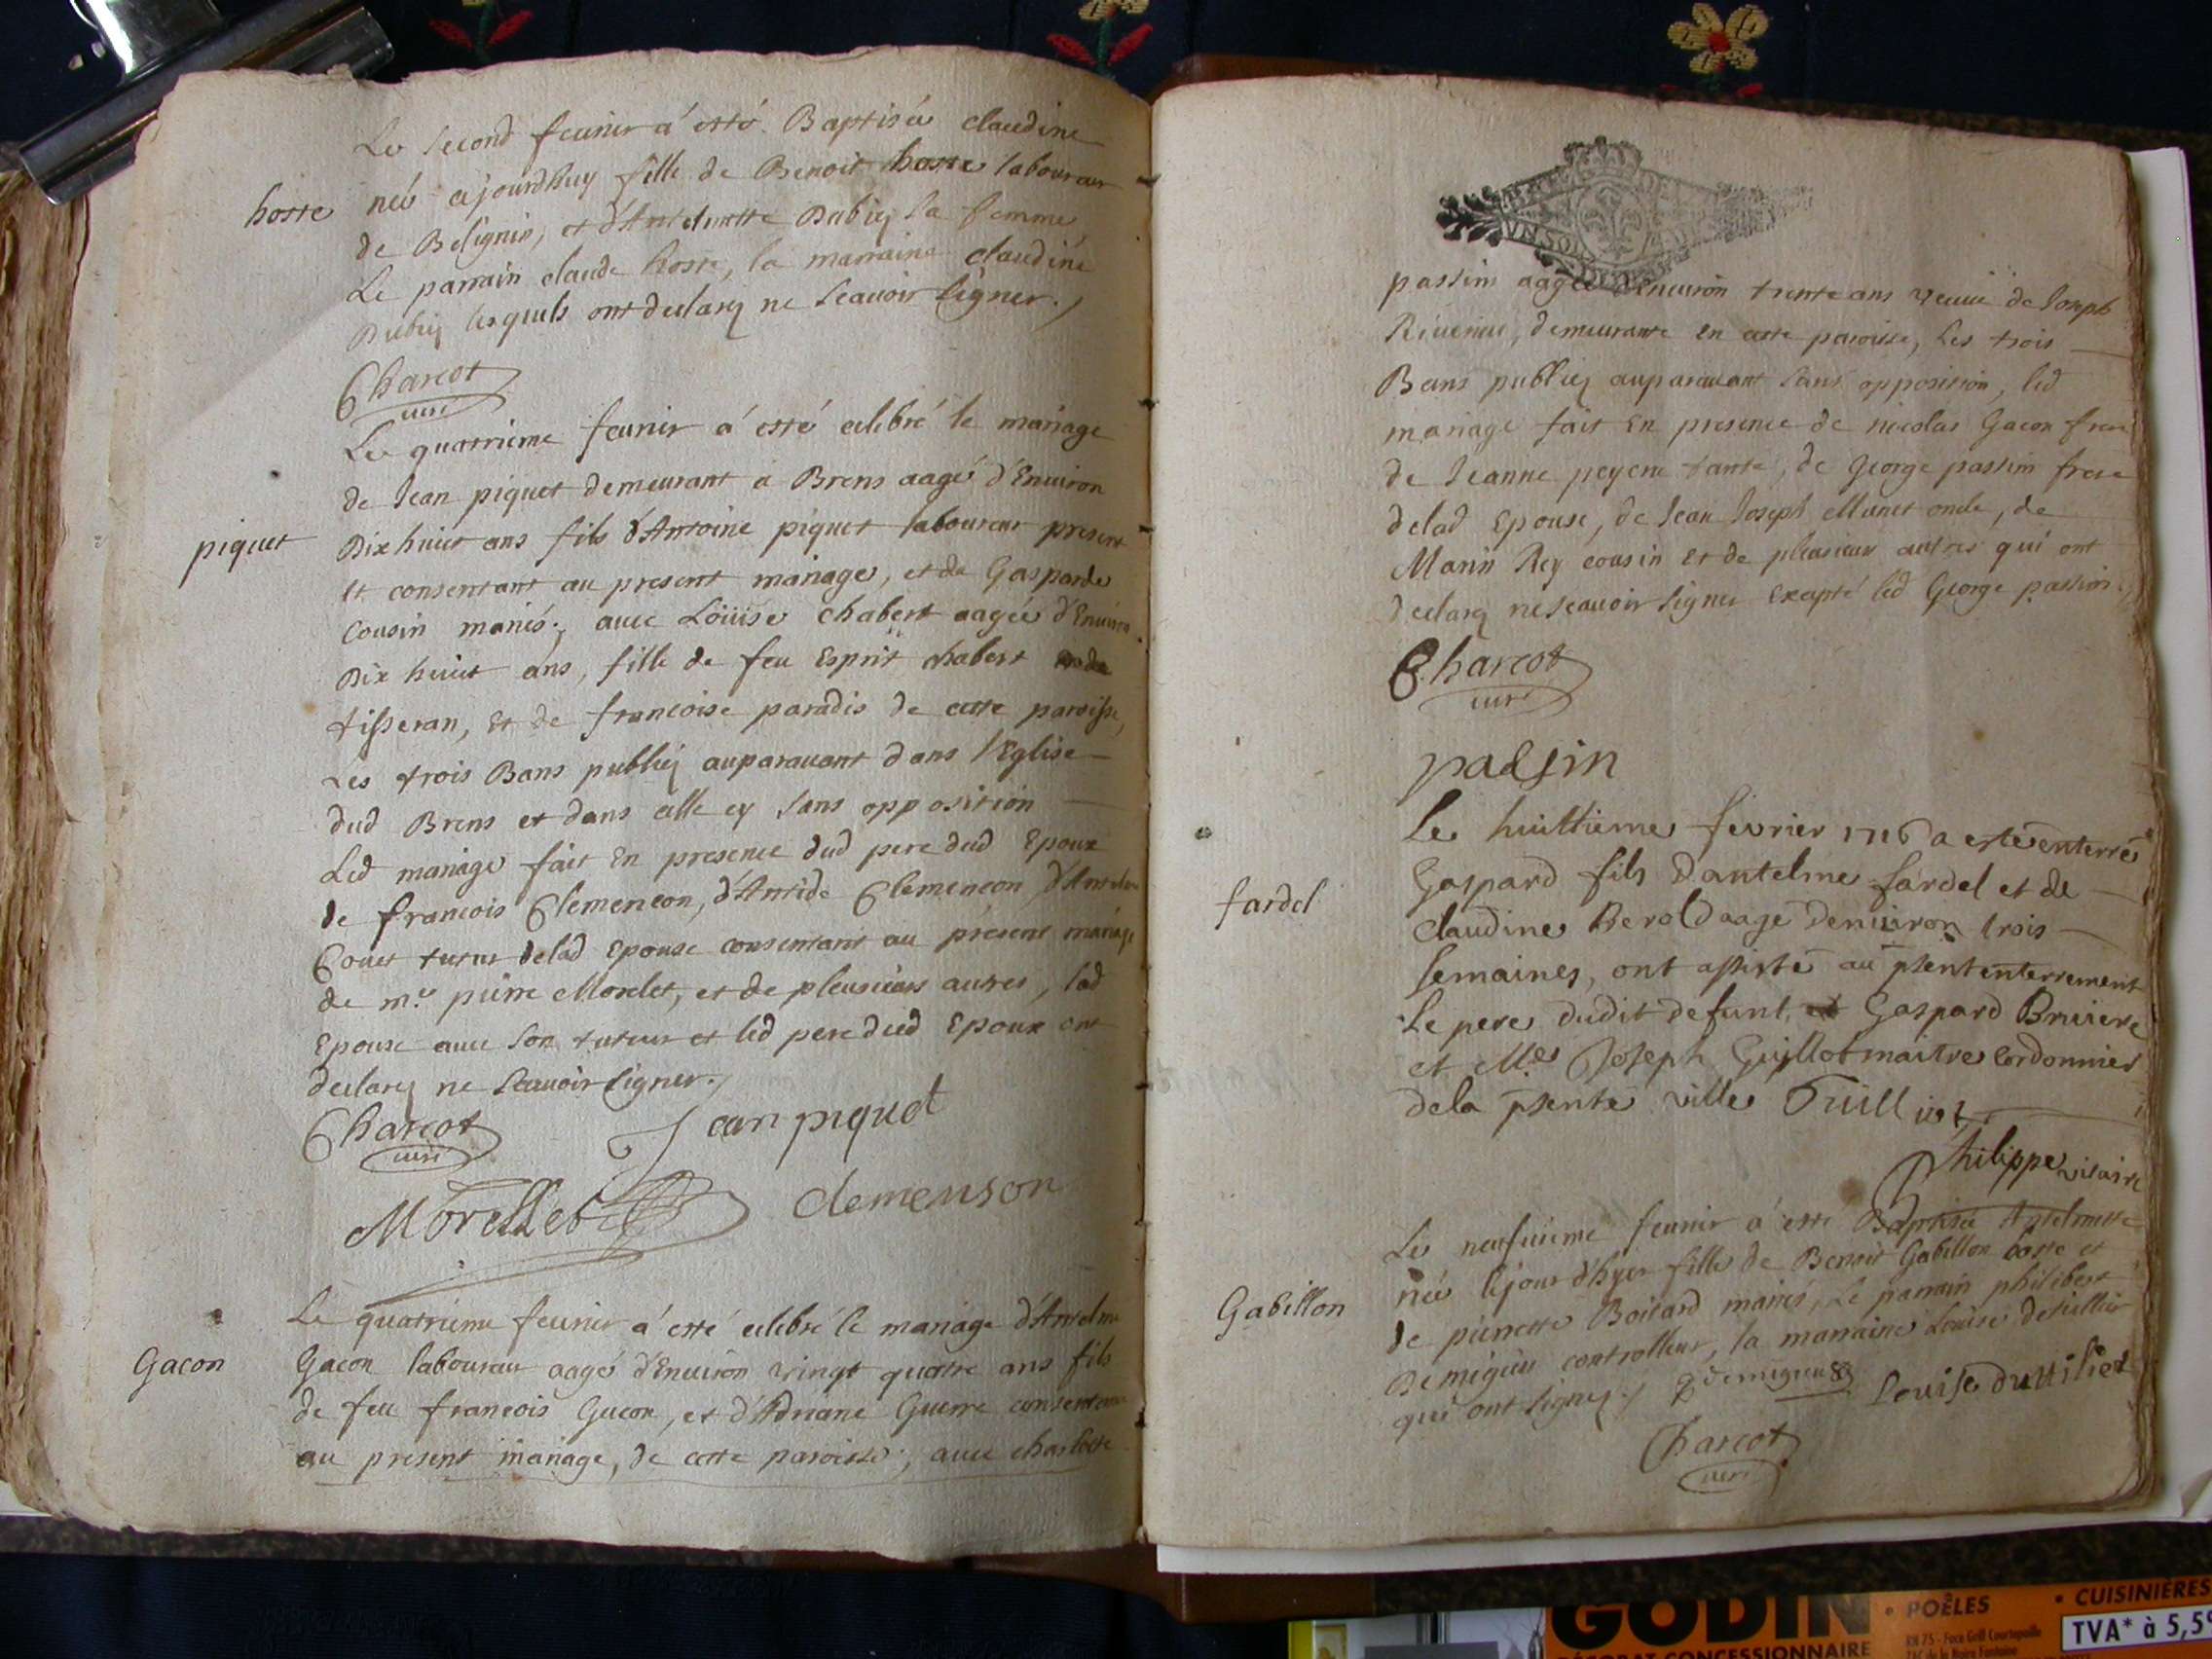 Le second feurier a esté Baptisée claudine
hoste
née ajourdhuy fille de Benoit hoste laboureur
de Belignin, et d'Antelmette Dubiez sa femme
Le parrain claude hoste, la marraine claudine
Dubiez lesquels ont declarez ne scauoir signer./
Charcot
curé
Le quatrieme feurier a esté celebré le mariage
de Jean piquet demeurant a Brens aagé d'Enuiron
piquet
Dix huict ans fils d'Antoine piquet laboureur present
et consentant au present mariage, et de Gasparde
Cousin mariés; auec Loüise Chabert aagée d'Enuiron
Dix huict ans, fille de feu Esprit chabert
tisseran, Et de francoise paradis de cette paroisse,
Les trois Bans publiez auparauant dans l'Eglise
dud Brens et dans celle cy sans opposition
Led mariage fait En presence dud pere dud Epoux
de francois Clemencon, d'Antide Clemencon, d'Antelme
Couet tuteur delad Epouse consentant au present mariage
de mre pierre Morelet, et de pleusieurs autres, lad
Epouse auec son tuteur et led pere dud Epoux ont
declarez ne scauoir signer./
Charcot
curé
Jean piquet
Morellet
clemenson
Le quatrieme feurier a esté celebré le mariage d'Antelme
Gacon
Gacon laboureur aagé d'Enuiron vingt quatre ans fils
de feu francois Gacon, et d'Adriane Guerre consentante
au present mariage, de cette paroisse; auec charlotte
passin aagée d'Enuiron trente ans veuue de Joseph
Riuenue, demeurante En cette paroisse, Les trois
Bans publiez auparauant sans opposition, led
mariage fait En presence de nicolas Gacon frere
de Jeanne peyene tante, de George passin frere
delad Epouse, de Jean Joseph Munet oncle, de
Marin Rey cousin Et de pleusieur autres qui ont
declarez ne scauoir signer Excepté led George passin./
Charcot
curé
passin
Le huittieme fevrier 1716 a esté enterré
fardel
Gaspard fils Dantelme fardel et de
Claudine Berold aage Denuiron trois
semaines, ont assisté au psent enterrement
Le pere dudit defunt, Gaspard Bruiere
et Mre Joseph Guillot maitre Cordonnier
dela psente ville Guilliot
Philippe vicaire
Le neufuieme feurier a esté Baptisée Antelmette
Gabillon
née lejour d'hyer fille de Benoit Gabillon hoste et
de pierrette Boitard mariés, Le parrain philibert
Demigieu controlleur, la marraine Louise detillier
qui ont signez./ demigieu Louise Duttiliet
Charcot
curé
GODIN
DÉCORAT CONCESSIONNAIRE
• POÊLES
• CUISINIÈRES
TVA* à 5,5